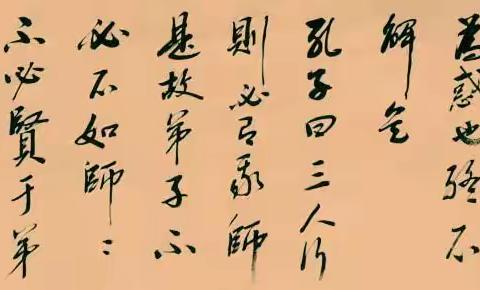 為惑也終不
解矣
孔子曰三人行
則必有我師
是故弟子不
必不如師〻
不必賢于弟